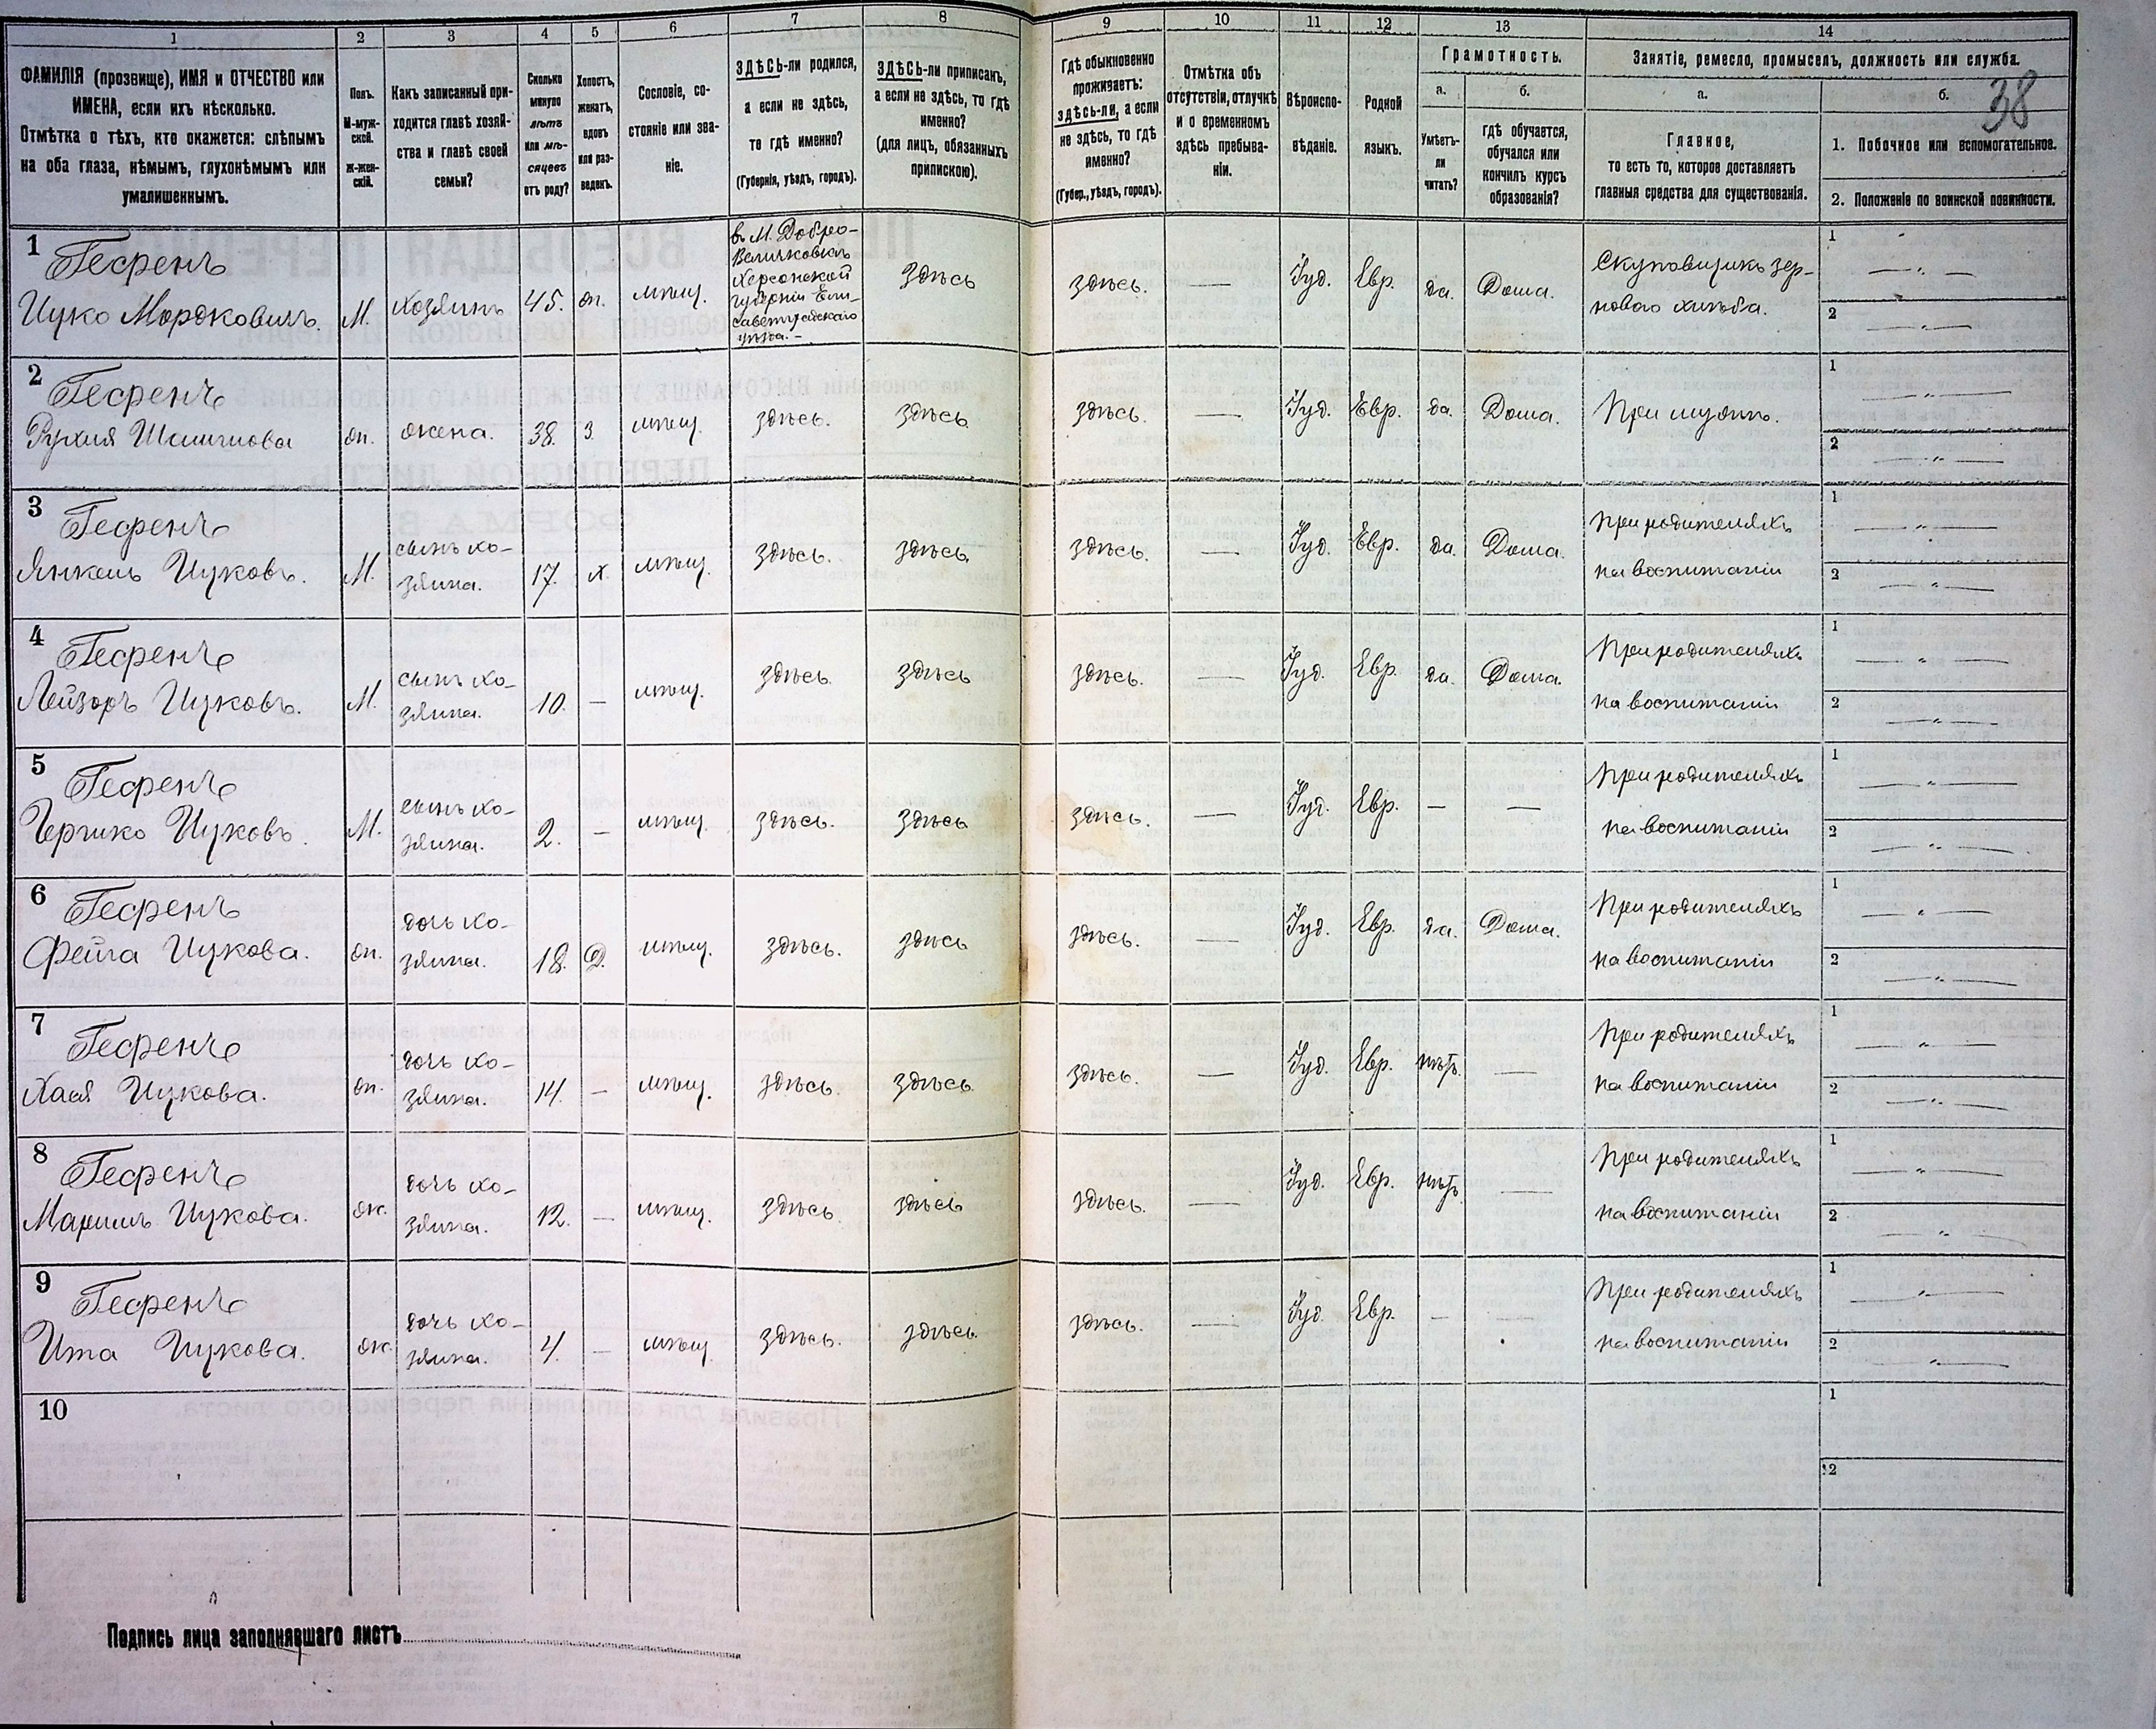 1 2 3 4 5 6 7 8 9 10 11 12 13 14
ФАМИЛІЯ (прозвище), ИМЯ и ОТЧЕСТВО или
ИМЕНА, если ихъ нѣсколько.
Отмѣтка о тѣхъ, кто окажется: слѣпымъ
на оба глаза, нѣмымъ, глухонѣмымъ или
умалишеннымъ.
Полъ.
М-муж-
ской.
Ж-жен-
скій.
Какъ записанный при-
ходится главѣ хозяй-
ства и главѣ своей
семьи?
Сколько
минуло
лѣтъ
или мѣ-
сяцевъ
отъ роду?
Холостъ,
женатъ,
вдовъ
или раз-
веденъ.
Сословіе, со-
стояніе или зва-
ніе.
ЗДѢСЬ-ли родился,
а если не здѣсь,
то гдѣ именно?
(Губернія, уѣздъ, городъ).
ЗДѢСЬ-ли приписанъ,
а если не здѣсь, то гдѣ
именно?
(для лицъ, обязанныхъ
припискою).
Гдѣ обыкновенно
проживаетъ:
здѣсь-ли, а если
не здѣсь, то гдѣ
именно?
(Губер., уѣздъ, городъ).
Отмѣтка объ
отсутствіи, отлучкѣ
и о временномъ
здѣсь пребыва-
ніи.
Вѣроиспо-
вѣданіе.
Родной
языкъ.
Грамотность.
а.
Умѣетъ-
ли
читать?
б.
гдѣ обучается,
обучался или
кончилъ курсъ
образованія?
Занятіе, ремесло, промыселъ, должность или служба.
а.
Главное,
то есть то, которое доставляетъ
главныя средства для существованія.
б.
38
1. Побочное или вспомогательное.
2. Положеніе по воинской повинности.
1
Гесренъ
Ицко Мордковичъ. М. Хозяинъ 45. ж. мѣщ.
въ М. Добро-
Величковкѣ
Херсонской
губерніи Ели-
саветградскаго
уѣзда.-
здѣсь здѣсь. — Іуд. Евр. да. Дома.
Скупщикъ зер-
нового хлѣба.
1 — " —
2 — " —
2
Гесренъ
Рухля ж. жена. 38. З. мѣщ. здѣсь. здѣсь здѣсь. — Іуд. Евр. да. Дома. При мужѣ.
1 — " —
2 — " —
3
Гесренъ
Янкель Ицковъ. М. сынъ хо-
зяина. 17. х. мѣщ. здѣсь. здѣсь здѣсь. — Іуд. Евр. да. Дома.
При родителяхъ
на воспитаніи
1 — " —
2 — " —
4
Гесренъ
Лейзоръ Ицковъ. М. сынъ хо-
зяина. 10. — мѣщ. здѣсь. здѣсь здѣсь. — Іуд. Евр. да. Дома.
При родителяхъ
на воспитаніи
1 — " —
2 — " —
5
Гесренъ
Гершко Ицковъ. М. сынъ хо-
зяина. 2. — мѣщ. здѣсь. здѣсь здѣсь. — Іуд. Евр. — —
При родителяхъ
на воспитаніи
1 — " —
2 — " —
6
Гесренъ
Фейга Ицкова. ж. дочь хо-
зяина. 18. Д. мѣщ. здѣсь. здѣсь здѣсь. — Іуд. Евр. да. Дома.
При родителяхъ
на воспитаніи
1 — " —
2 — " —
7
Гесренъ
Хая Ицкова. ж. дочь хо-
зяина. 14. — мѣщ. здѣсь здѣсь здѣсь. — Іуд. Евр. нѣтъ. —
При родителяхъ
на воспитаніи
1 — " —
2 — " —
8
Гесренъ
Ицкова. ж. дочь хо-
зяина. 12. — мѣщ. здѣсь здѣсь здѣсь. — Іуд. Евр. нѣтъ —
При родителяхъ
на воспитаніи
1 — " —
2 — " —
9
Гесренъ
Ита Ицкова. ж. дочь хо-
зяина. 4. — мѣщ. здѣсь. здѣсь. здѣсь. — Іуд. Евр. — —
При родителяхъ
на воспитаніи
1 — " —
2 — " —
10
1
2
Подпись лица заполнявшаго листъ